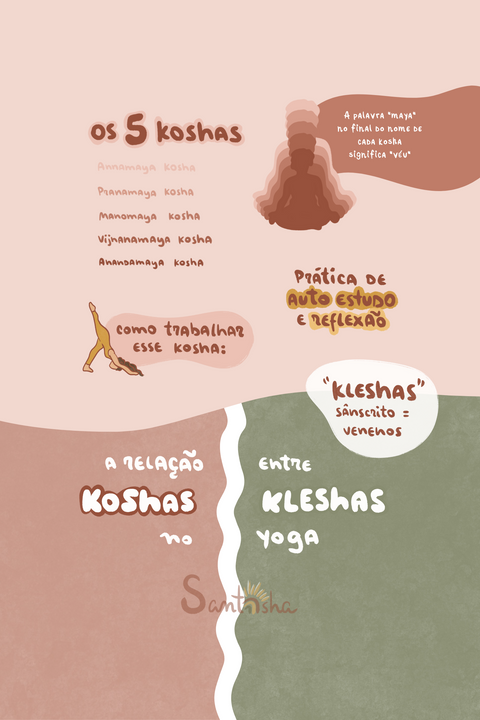 os 5 koshas
Annamaya kosha
Pranamaya kosha
Manomaya kosha
Vijnanamaya kosha
Anandamaya kosha
A palavra "maya"
no final do nome de
cada kosha
significa "véu"
Prática de
auto estudo
e reflexão
como trabalhar
esse kosha:
"KLESHAS"
sânscrito =
venenos
a relação entre
KOSHAS KLESHAS
no yoga
Santosha